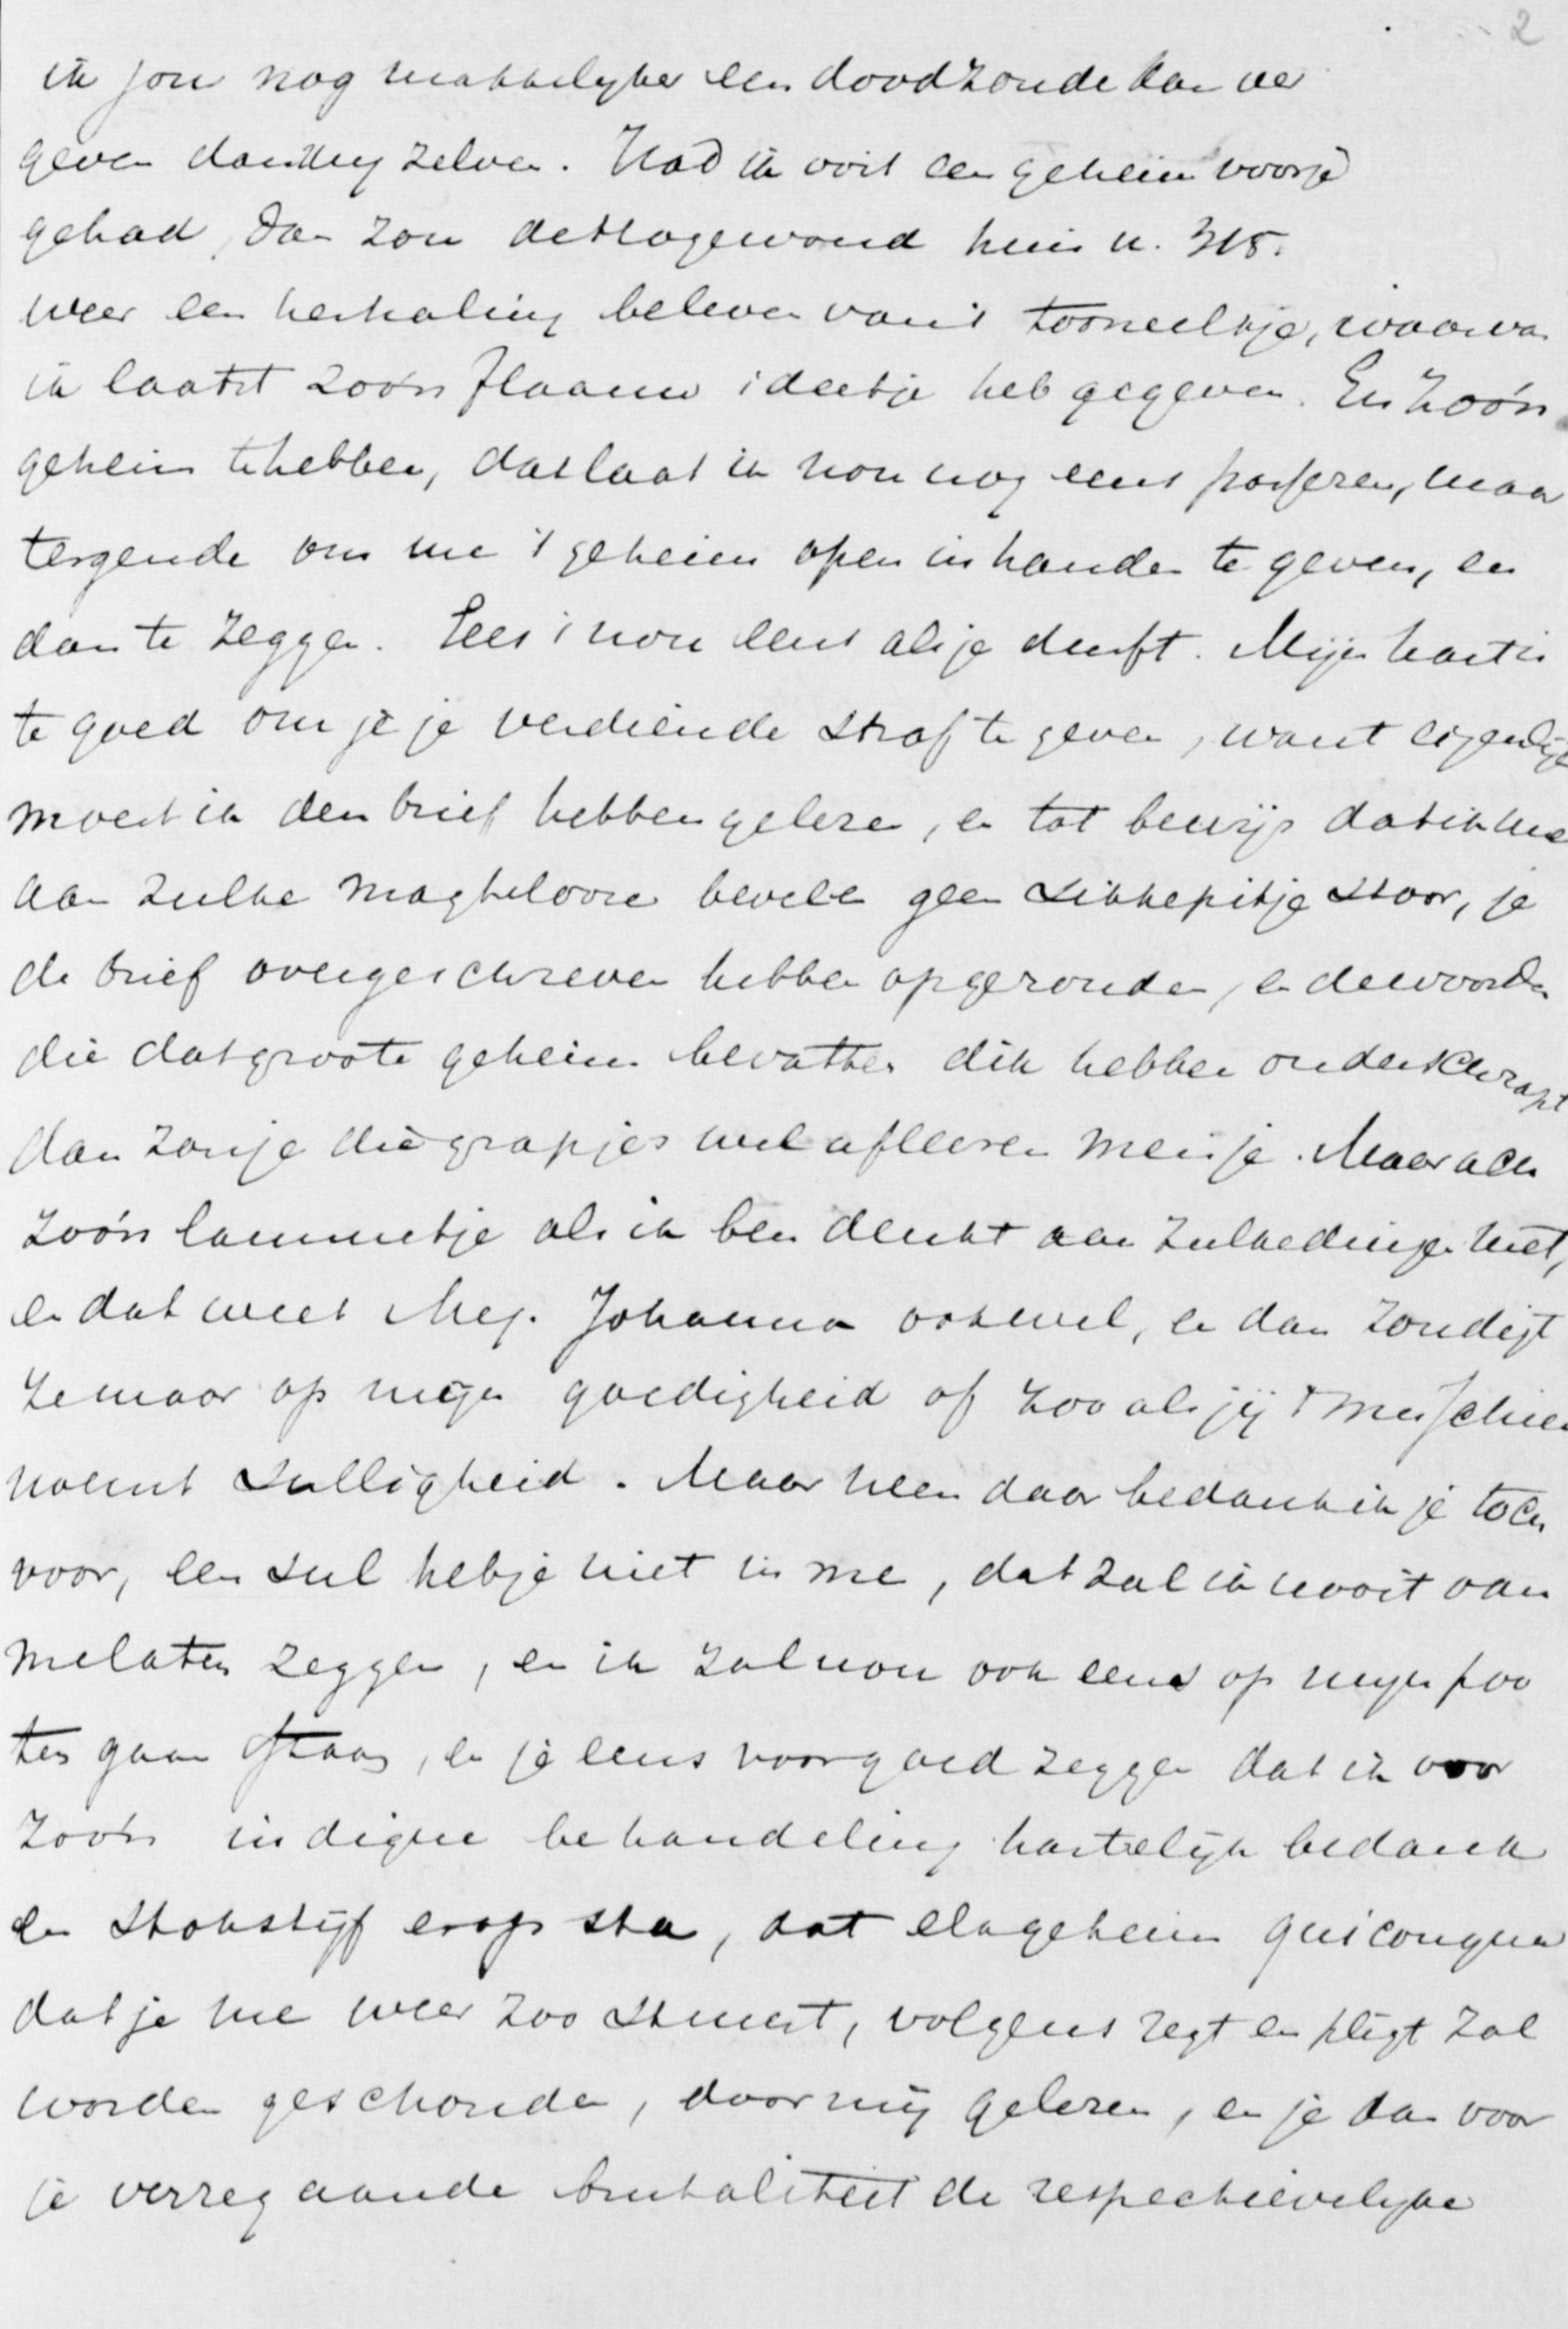 2
ik jou nog makkelyker een doodzonde kan ver
geven dan my zelven. Had ik ooit een geheim voor je
gehad, dan zou de Hogewoerd huis n. 315.
weer een herhaling beleven van 't tooneeltje, waarvan
ik laatst zoo'n flaauw ideetje heb gegeven. En zoo'n
geheim te hebben, dat laat ik nou nog eens passeren, maar
tergende om me 't geheim open in handen te geven, en
dan te zeggen. Lees 't nou eens als je durft. Mijn hart is
te goed om je je verdiende straf te geven, want eigenlijk
moest ik den brief hebben gelezen, en tot bewijs dat ik me
aan zulke magtelooze bevelen geen sikkepitje stoor, je
de brief overgeschreven hebben opgezonden, en de woorden
die dat groote geheim bevatten dik hebben onderschrapt
dan zou je die grapjes wel afleeren meisje. Maar ach
zoo'n lammetje als ik ben denkt aan zulke dingen niet,
en dat weet Mej. Johanna ook wel, en dan zondigt
ze maar op mijn goedigheid of zoo als jij 't misschien
noemt sulligheid. Maar neen daar bedank ik je toch
voor, een sul heb je niet in me, dat zal ik nooit van
me laten zeggen, en ik zal nou ook eens op mijn poo
ten gaan staan, en je eens voorgoed zeggen dat ik voor
zoo'n indigne behandeling hartelijk bedank
en stokstijf erop sta, dat elk geheim quiconque
dat je me weer zoo stuurt, volgens regt en pligt zal
worden geschonden, door mij gelezen, en je dan voor
je verregaande brutaliteit de respectievelyke